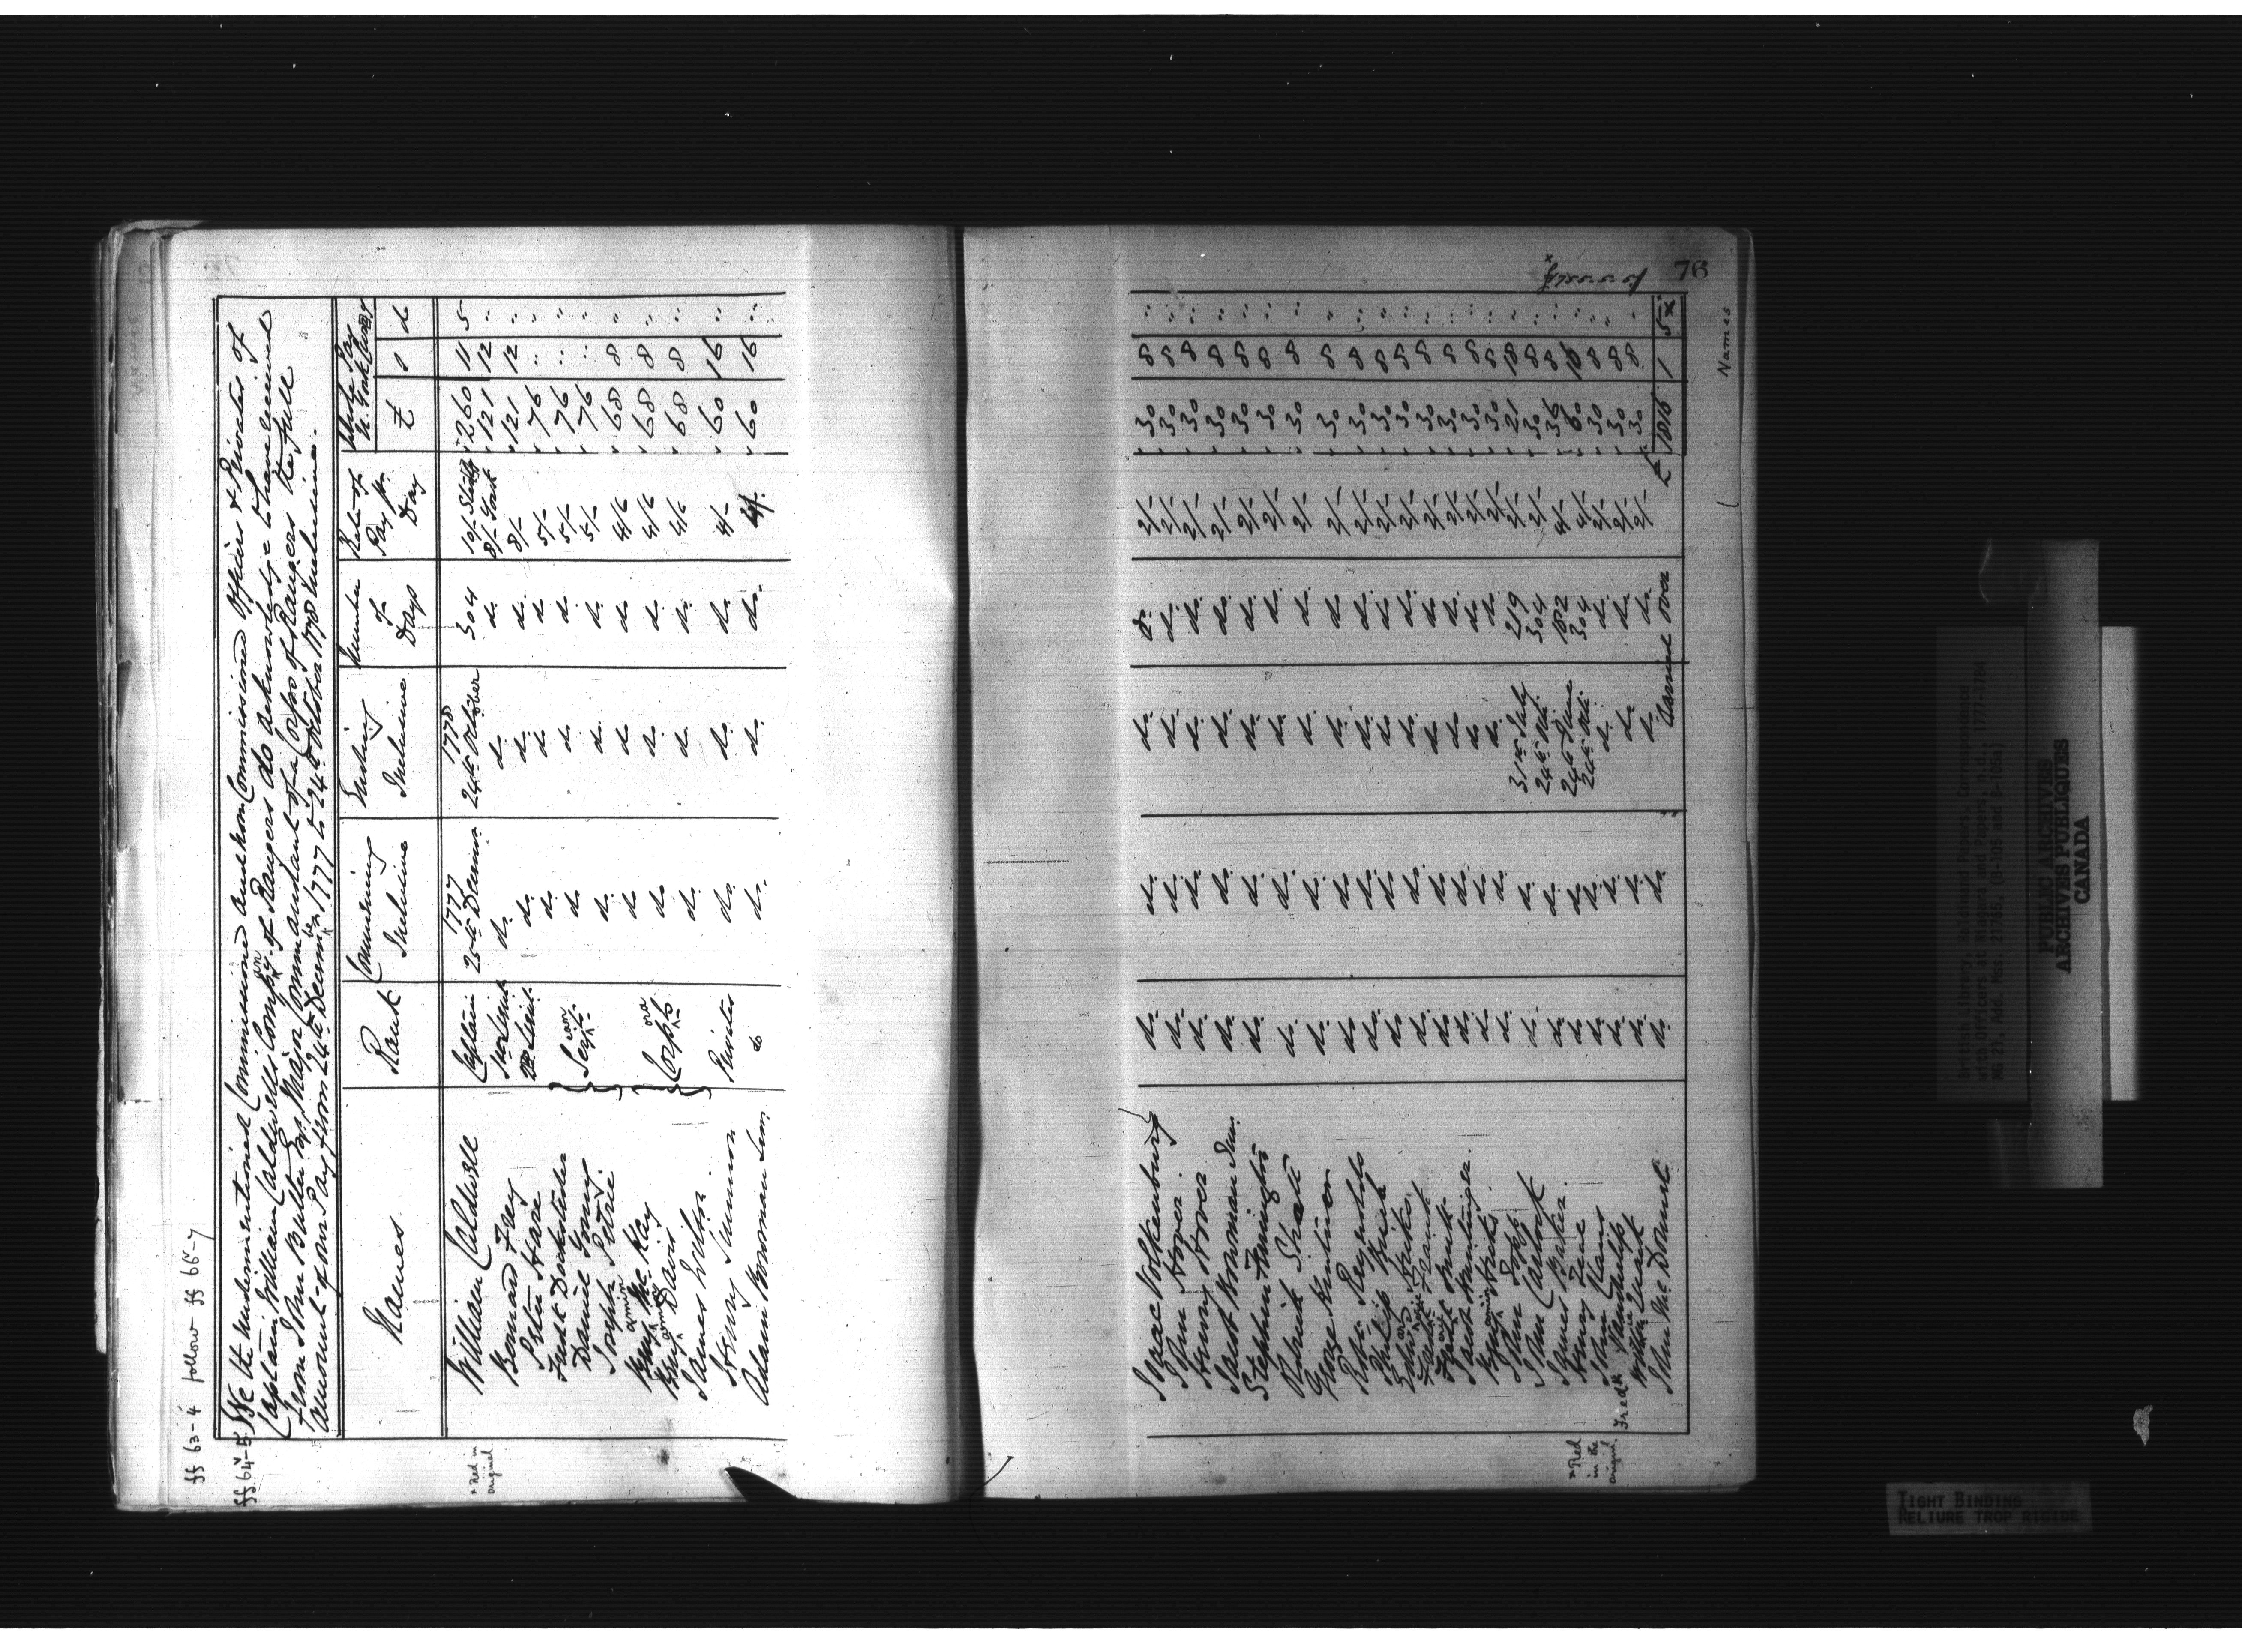 ff 63-4 follow ff 66v-7
ff. 64v-5 We the undermentioned Commissioned and non Commissioned Officers & Privates of
Captain William Caldwell's Company of Rangers do acknowledge to have received
from John Butler Esqr. Major Commandant of a Corps of Rangers the full
amount of our Pay from 24th December 1777 to 24th October 1778 Inclusive.
Names Rank Commencing Inclusive Ending Inclusive Number of Days Rate of Pay pr. Day Whole Pay N. York Curr£y £ s d
1777 1778
William Caldwell Captain 25th Decemr. 24th October 304 10/- Sterlg 260 11 5
Bernard Frey 1st Lieut. do. do. do. 8/- York 121 12 "
Peter Hare 2d Lieut. do. do. do. 8/- 121 12 "
Fredk Dockstider } do. do. do. 5/- 76 " "
Daniel Young } Serjts. do. do. do. 5/- 76 " "
Joseph Petrie } do. do. do. 5/- 76 " "
Benj. McKay } do. do. do. 4/6 68 8 "
Benj. Davis } Corpls. do. do. do. 4/6 68 8 "
James Wilson } do. do. do. 4/6 68 8 "
Henry Simmon Privates do. do. do. 4/- 60 16 "
Adam Bowman Senr. do do. do. do. 4/- 60 16 "
* Red in
original
Isaac Volkenburg do. do. do. do. 2/- 30 8 "
John Hover do. do. do. do. 2/- 30 8 "
Henry Hover do. do. do. do. 2/- 30 8 "
Jacob Bowman Senr. do. do. do. do. 2/- 30 8 "
Stephen Farrington do. do. do. do. 2/- 30 8 "
do. do. do. do. 2/- 30 8 "
George do. do. do. do. 2/- 30 8 "
Robt. Reynolds do. do. do. do. 2/- 30 8 "
Philip do. do. do. do. 2/- 30 8 "
Edwd. Hicks do. do. do. do. 2/- 30 8 "
do. do. do. do. 2/- 30 8 "
do. do. do. do. 2/- 30 8 "
Jacob Huntinger. do. do. do. do. 2/- 30 8 "
Benj. Hicks do. do. do. do. 2/- 30 8 "
John do. do. do. do. 2/- 30 8 "
John do. do. 31st July 219 2/- 21 18 "
James Baker. do. do. 24th Oct. 304 2/- 30 8 "
Henry do. do. 24th June 182 4/- 36 8 "
John do. do. 24th Oct. 304 4/- 60 16 "
Fredk do. do. do. do. 2/- 30 8 "
do. do. do. do. 2/- 30 8 "
John McDonnel do. do. do. do. 2/- 30 8 "
Carried over £ 1816 1 5 x
* Red
in the
original.
76
Names
British Library, Haldimand Papers, Correspondence
with Officers at Niagara and Papers, n.d., 1777-1784
MG 21, Add. Mss. 21765, (B-105 and B-105a)
PUBLIC ARCHIVES
ARCHIVES PUBLIQUES
CANADA
TIGHT BINDING
RELIURE TROP RIGIDE